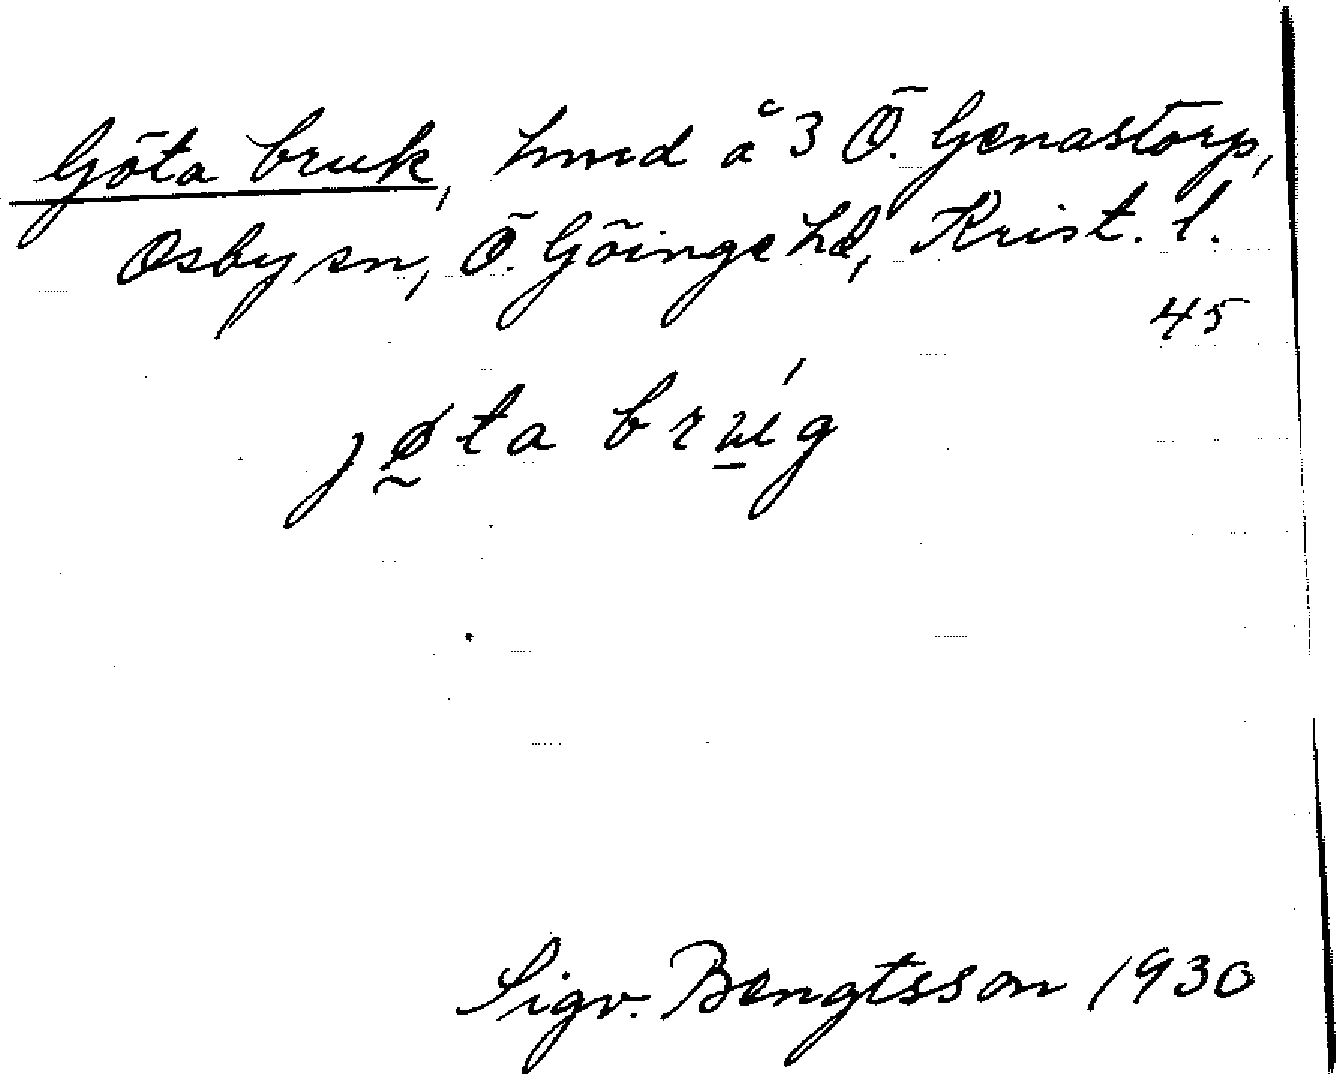 Göta bruk, hmd å 3 Ö. Genastorp,
Osby sn, Ö. Göinge hd, Krist. l.
45
jøta brúg
Sigv. Bengtsson 1930